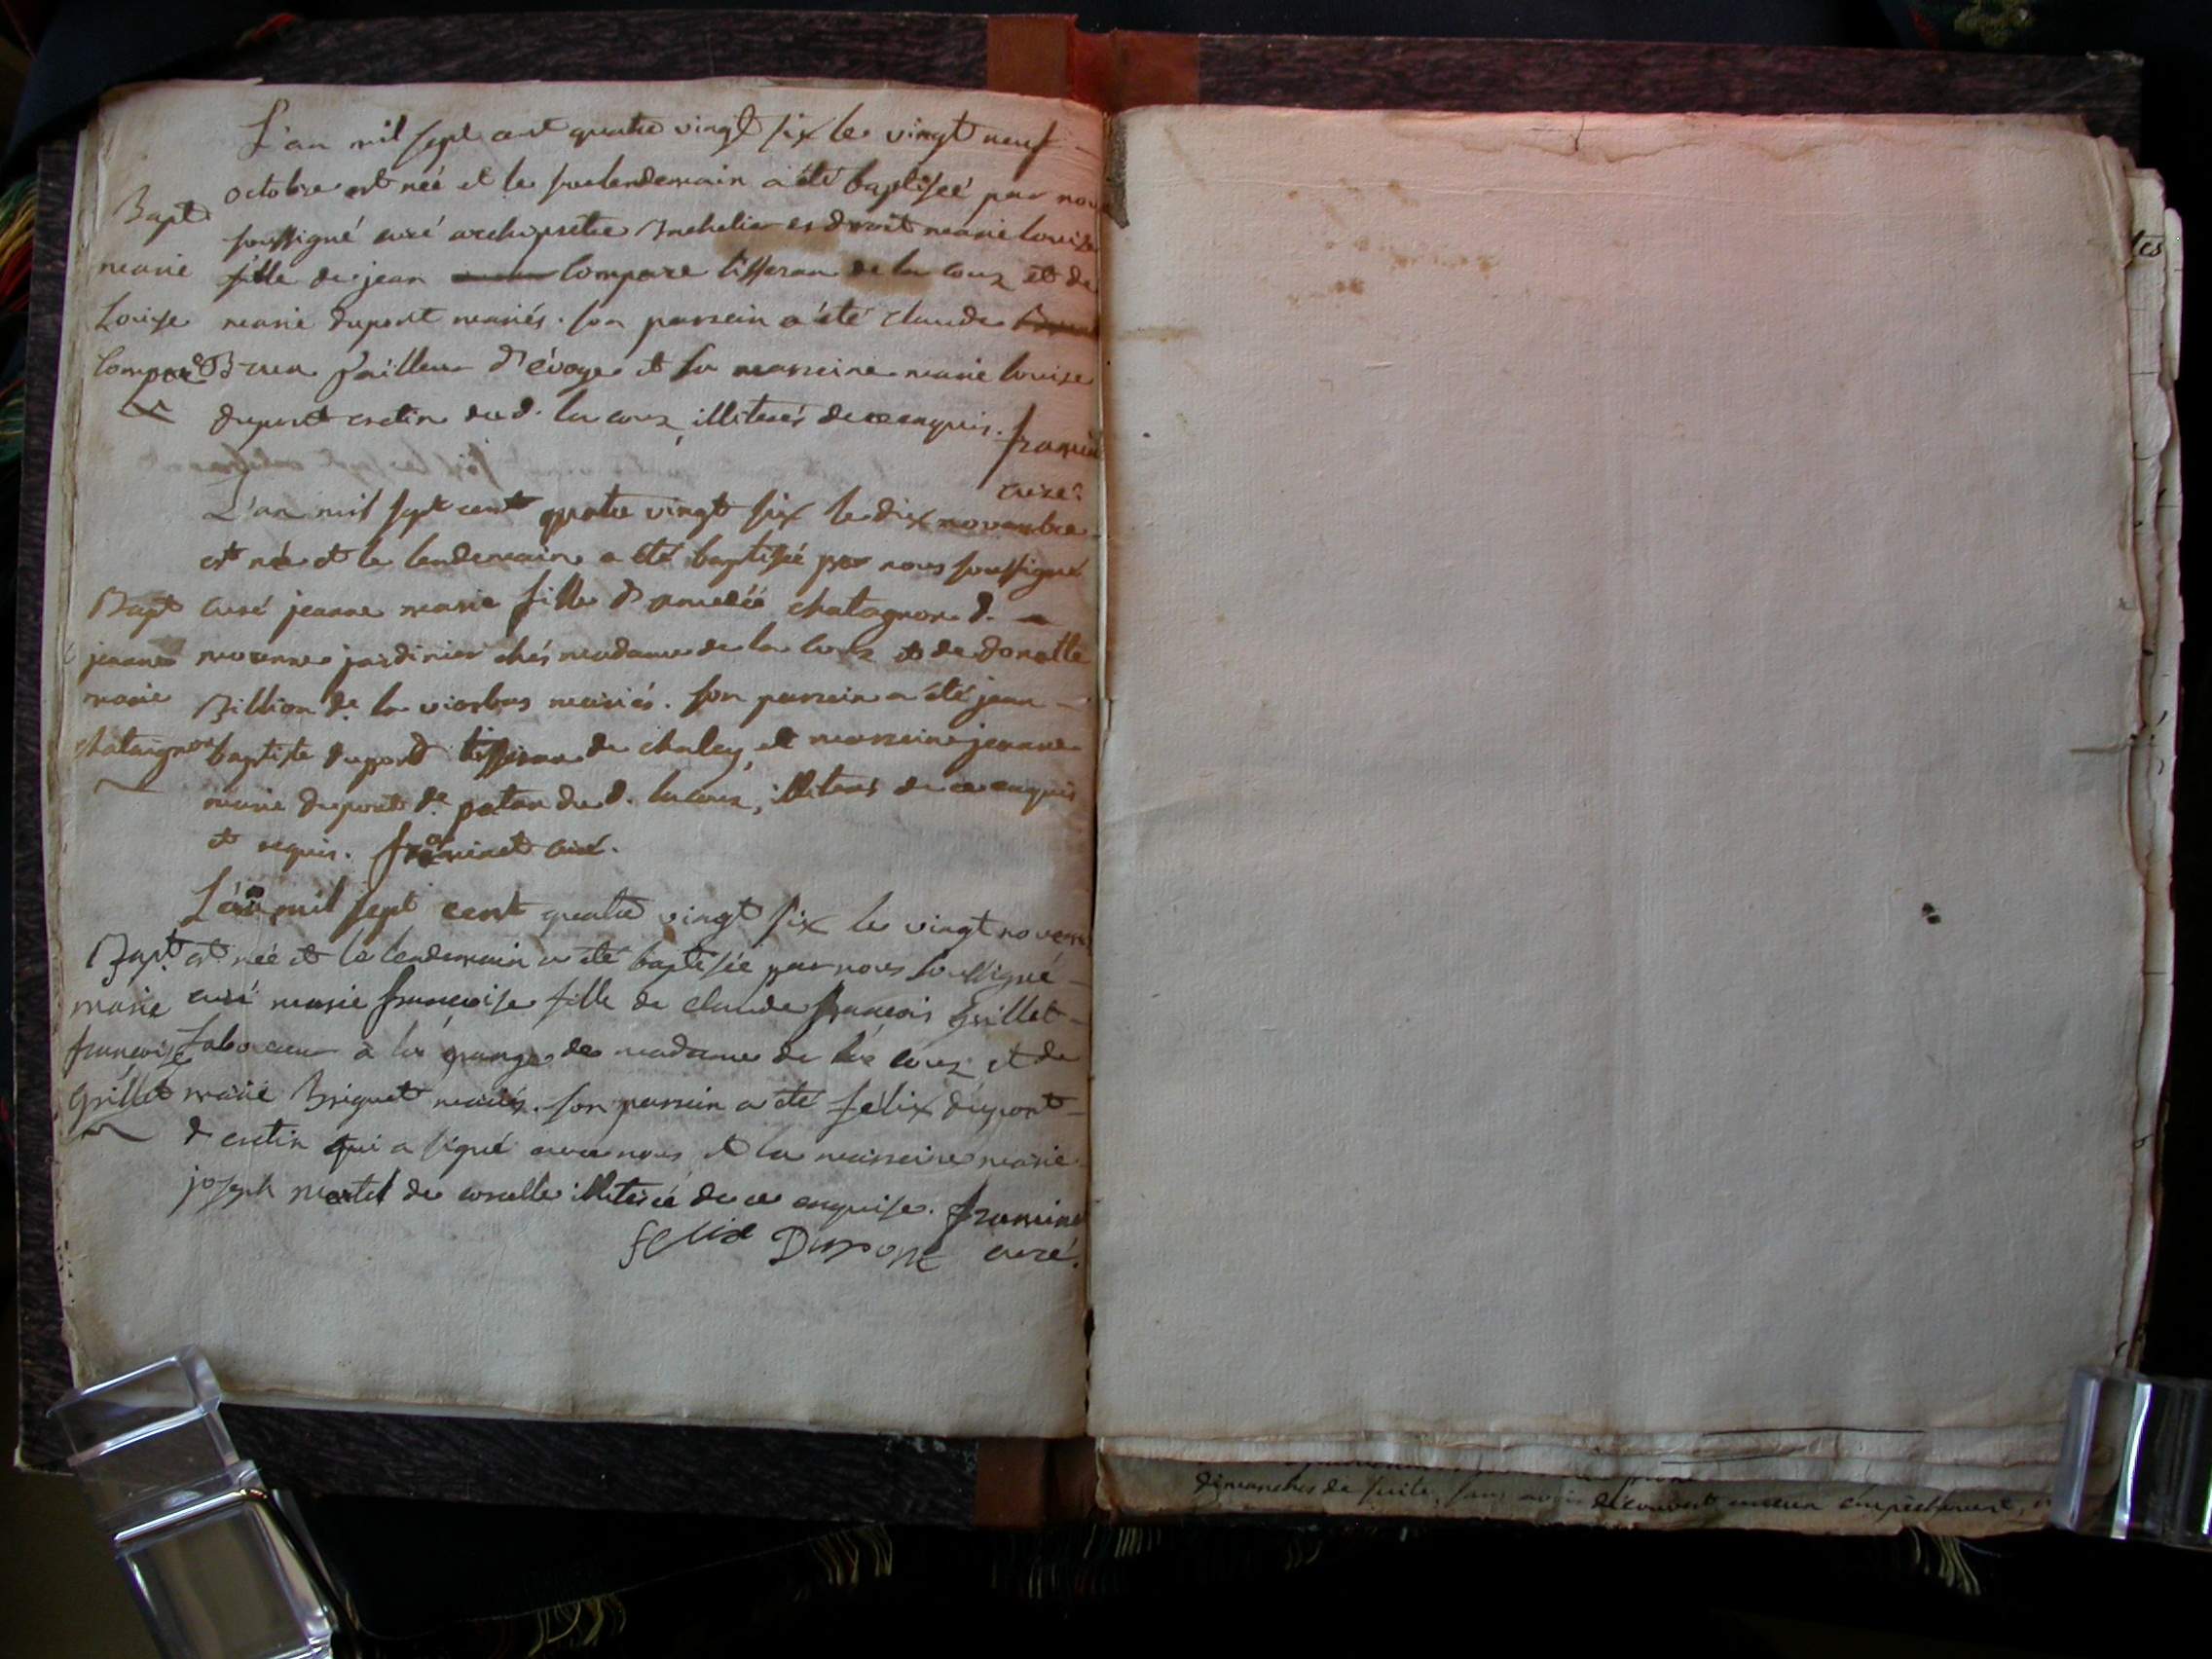 L'an mil sept cent quatre vingt six le vingt neuf
octobre est née et le surlendemain a été baptisée par nou
soussigné curé archiprêtre Bachelier es droit marie louise
fille de jean compare tisseran de la couz et de
marie dupont mariés. son parrein a été claude
Brun tailleur d'évoge et sa marreine marie louise
dupont cretin du d. la couz, illiterés de ce enquis. framin
curé
Bapt
marie
Louise
Compare
L'an mil sept cent quatre vingt six le dix novembre
est née et le lendemain a été baptisée par nous soussigné
curé jeanne marie fille d'amedée chatagnon d.
jardinier chés madame de la couz et de donatte
Billion de la viorbas mariés. son parrein a été jean
baptiste dupond tisseran de chaley, et marreine jeanne
marie dupont de patan du d. la couz, illiterés de ce enquis
et requis. framinet curé.
Bapt
jeanne
marie
chataignon
L'an mil sept cent quatre vingt six le vingt novem
est née et le lendemain a été baptisée par nous soussigné
curé marie françoise fille de claude françois Grillet
laboureur à la grange de madame de la couz et de
marie Briguet mariés. son parrein a été felix dupont
d cretin qui a signé avec nous et la marreine marie
joseph martel de corcelle illiterée de ce enquise. framine
felix Dupont curé.
Bapt
marie
françoise
Grillet
dimanches de suite, sans avoir découvert aucun empêchement,
tes